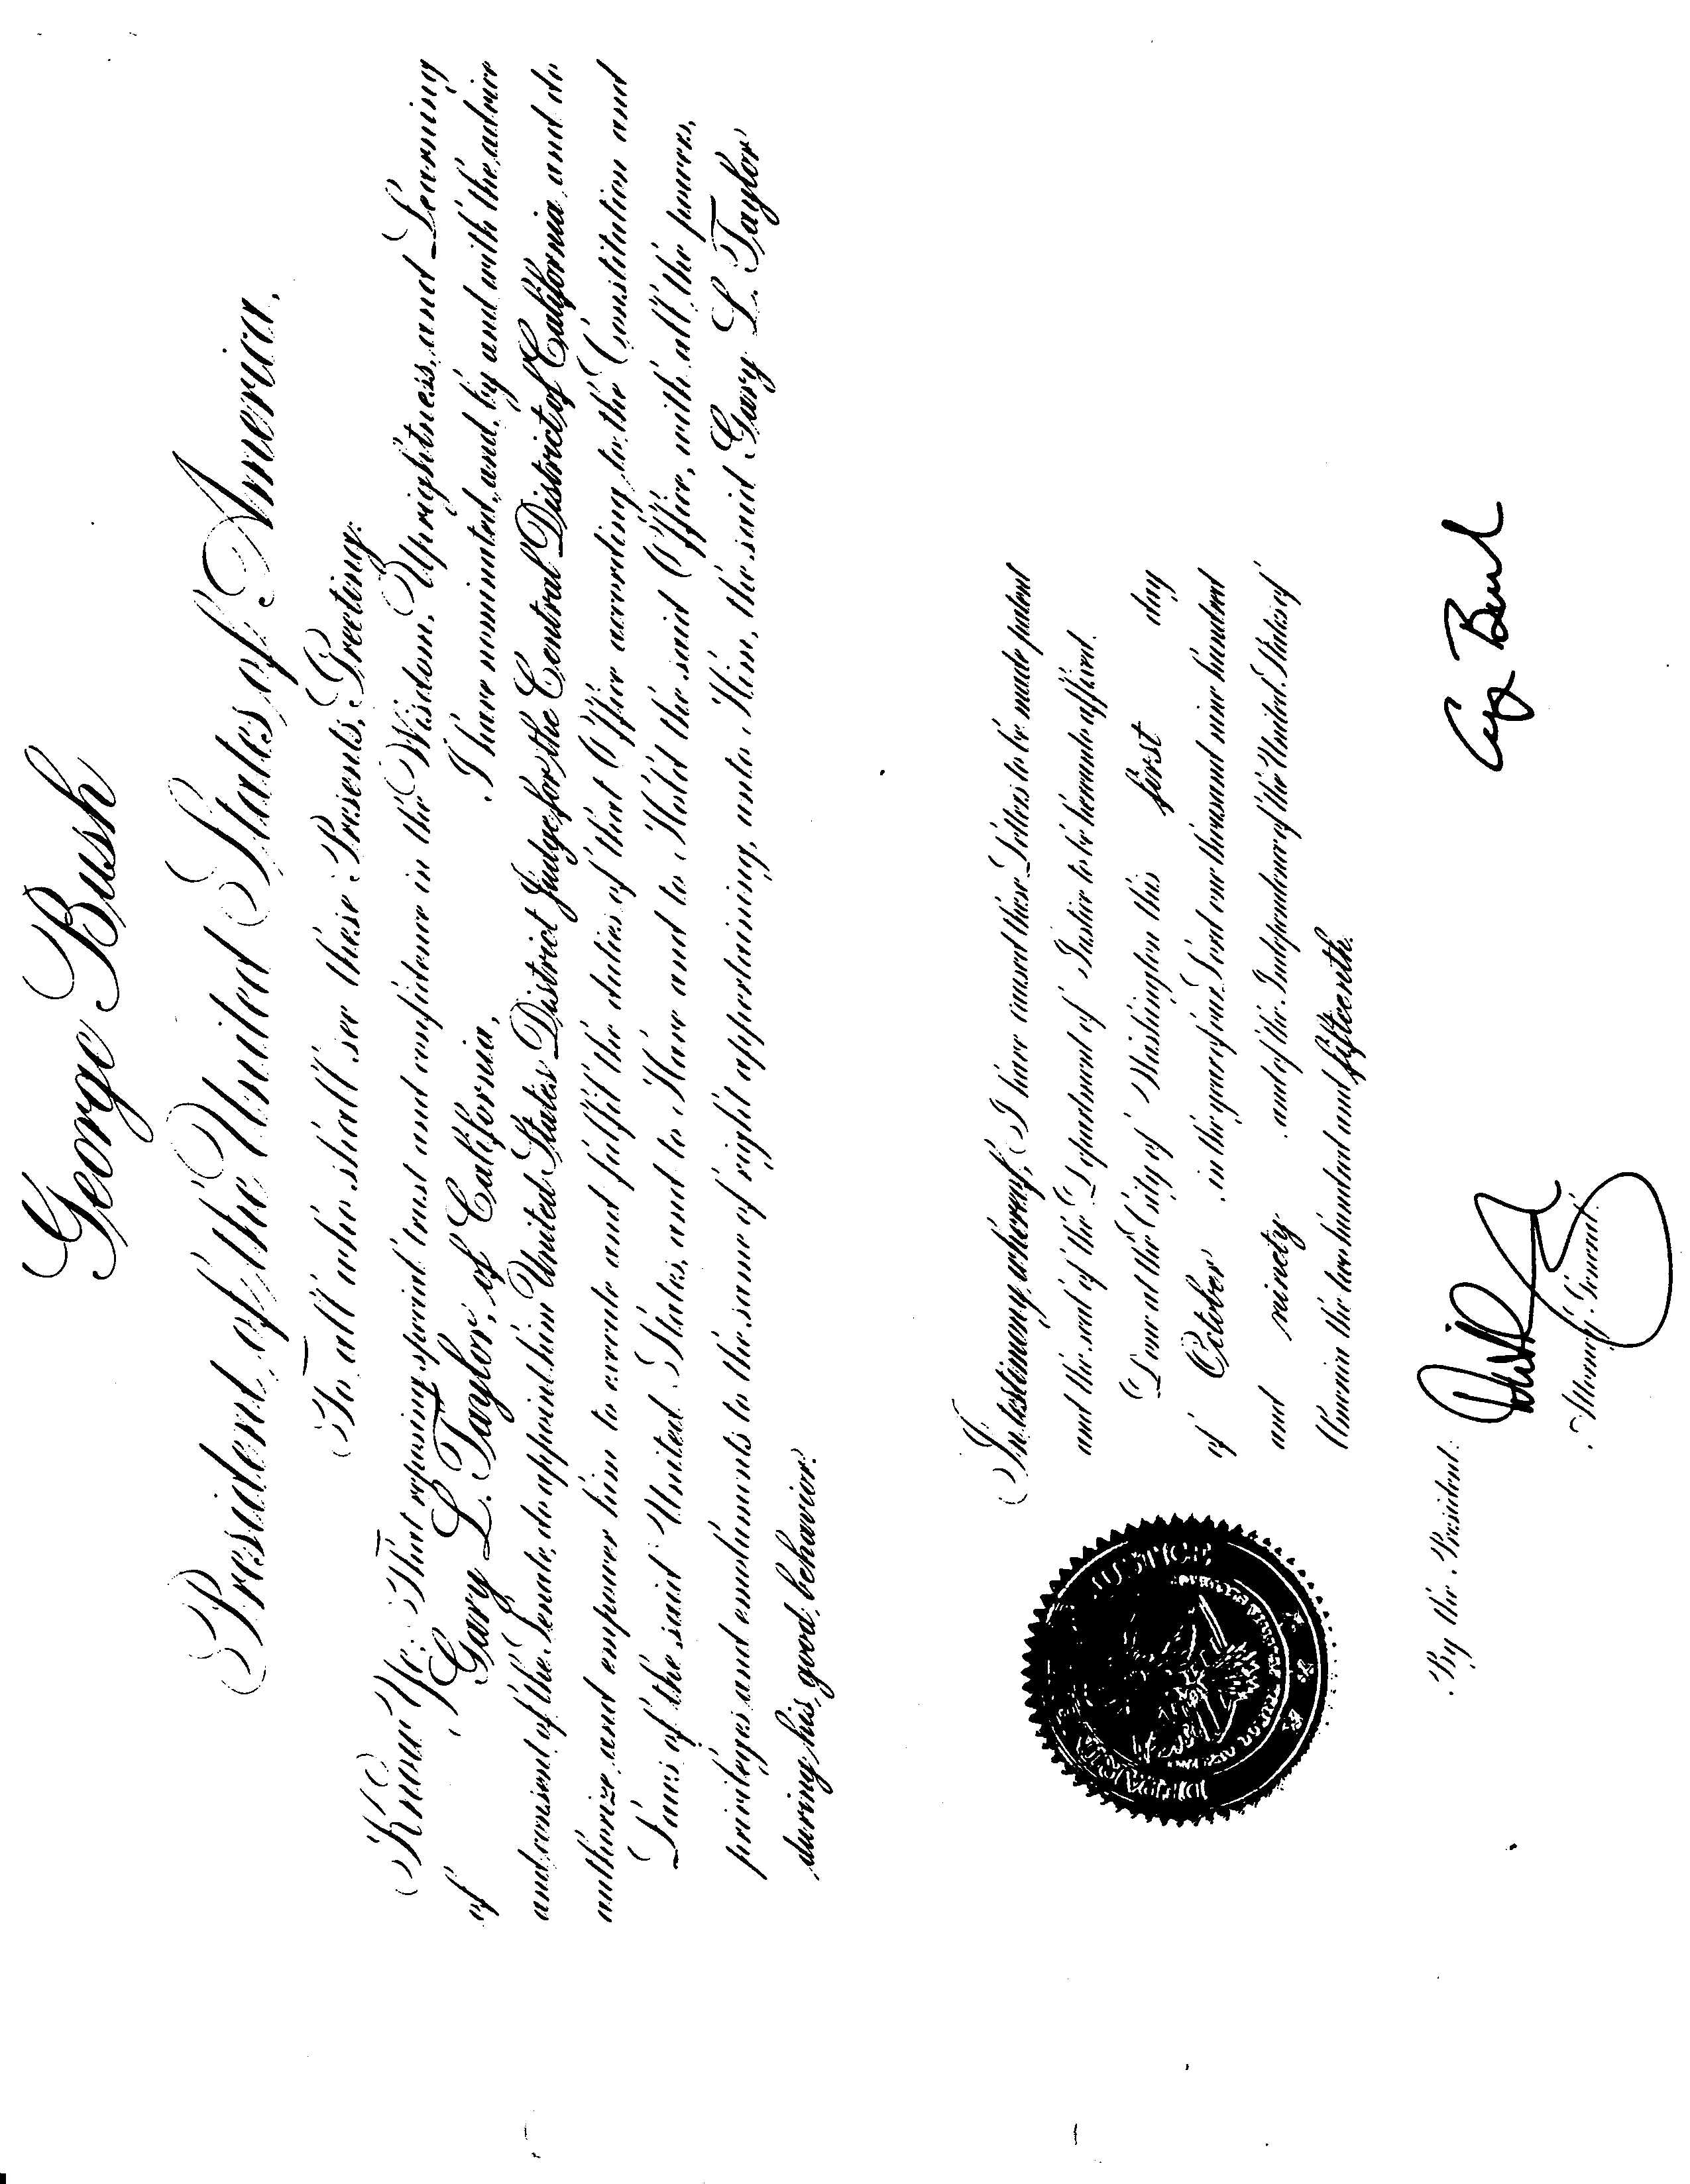 George Bush
President of the United States of America,
To all who shall see these Presents, Greeting:
Know Ye: That reposing special trust and confidence in the Wisdom, Uprightness, and Learning
of Gary L. Taylor, of California, I have nominated, and, by and with the advice
and consent of the Senate, do appoint him United States District Judge for the Central District of California, and do
authorize and empower him to execute and fulfil the duties of that Office according to the Constitution and
Laws of the said United States, and to Have and to Hold the said Office, with all the powers,
privileges and emoluments to the same of right appertaining, unto Him, the said Gary L. Taylor
during his good behavior.
In testimony whereof, I have caused these Letters to be made patent
and the seal of the Department of Justice to be hereunto affixed.
Done at the City of Washington this first day
of October in the year of our Lord one thousand nine hundred
and ninety and of the Independence of the United States of
America the two hundred and fifteenth.
JUSTICE
By the President:
Attorney General.